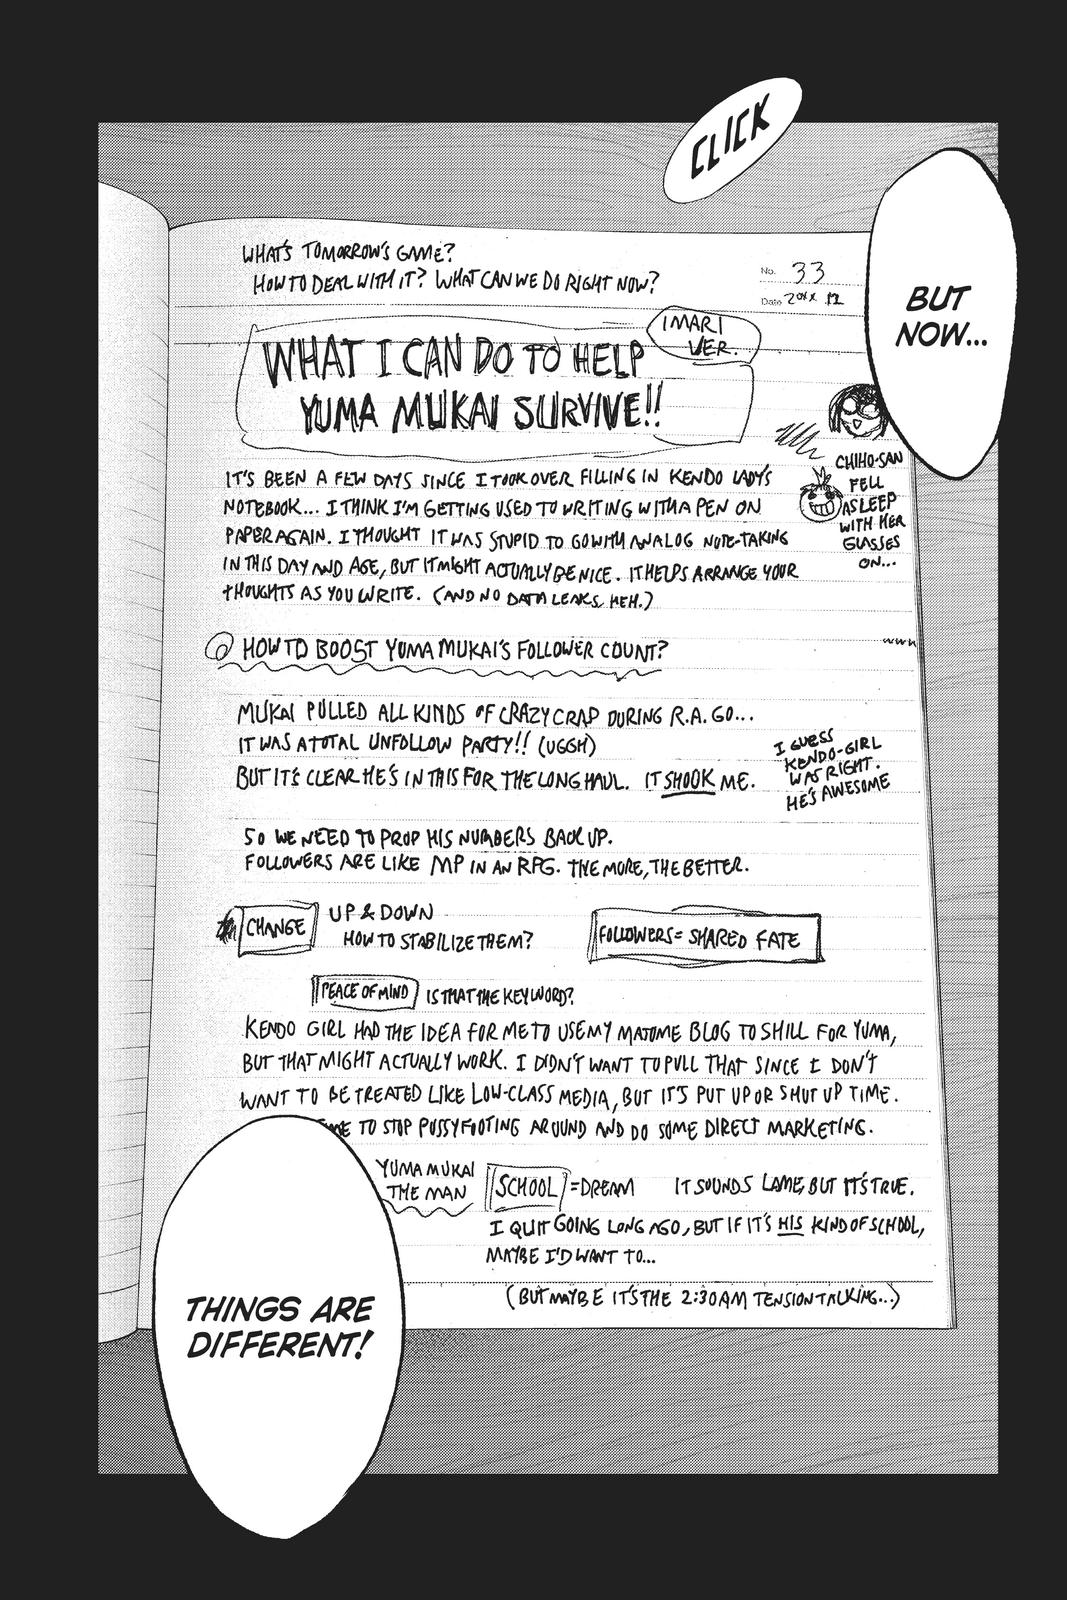 CLICK
BUT
NOW...
WHAT'S TOMORROW'S GAME?
HOW TO DEAL WITH IT? WHAT CAN WE DO RIGHT NOW?
No. 33
Date 20XX 12
IMARI
VER.
WHAT I CAN DO TO HELP
YUMA MUKAI SURVIVE!!
CHIHO-SAN
FELL
ASLEEP
WITH HER
GLASSES
ON...
IT'S BEEN A FEW DAYS SINCE I TOOK OVER FILLING IN KENDO LADY'S
NOTEBOOK... I THINK I'M GETTING USED TO WRITING WITH A PEN ON
PAPER AGAIN. I THOUGHT IT WAS STUPID TO GO WITH ANALOG NOTE-TAKING
IN THIS DAY AND AGE, BUT IT MIGHT ACTUALLY BE NICE. IT HELPS ARRANGE YOUR
THOUGHTS AS YOU WRITE. (AND NO DATA LEAKS, HEH.)
HOW TO BOOST YUMA MUKAI'S FOLLOWER COUNT?
www
MUKAI PULLED ALL KINDS OF CRAZY CRAP DURING R.A.GO...
IT WAS A TOTAL UNFOLLOW PARTY!! (UGGH)
BUT IT'S CLEAR HE'S IN THIS FOR THE LONG HAUL. IT SHOOK ME.
I GUESS
KENDO-GIRL
WAS RIGHT.
HE'S AWESOME
SO WE NEED TO PROP HIS NUMBERS BACK UP.
FOLLOWERS ARE LIKE MP IN AN RPG. THE MORE, THE BETTER.
CHANGE UP & DOWN
HOW TO STABILIZE THEM?
FOLLOWERS = SHARED FATE
PEACE OF MIND IS THAT THE KEYWORD?
KENDO GIRL HAD THE IDEA FOR ME TO USE MY MATOME BLOG TO SHILL FOR YUMA,
BUT THAT MIGHT ACTUALLY WORK. I DIDN'T WANT TO PULL THAT SINCE I DON'T
WANT TO BE TREATED LIKE LOW-CLASS MEDIA, BUT IT'S PUT UP OR SHUT UP TIME.
TO STOP PUSSYFOOTING AROUND AND DO SOME DIRECT MARKETING.
YUMA MUKAI
THE MAN
SCHOOL = DREAM IT SOUNDS LAME, BUT IT'S TRUE.
I QUIT GOING LONG AGO, BUT IF IT'S HIS KIND OF SCHOOL,
MAYBE I'D WANT TO...
(BUT MAYBE IT'S THE 2:30AM TENSION TALKING...)
THINGS ARE
DIFFERENT!